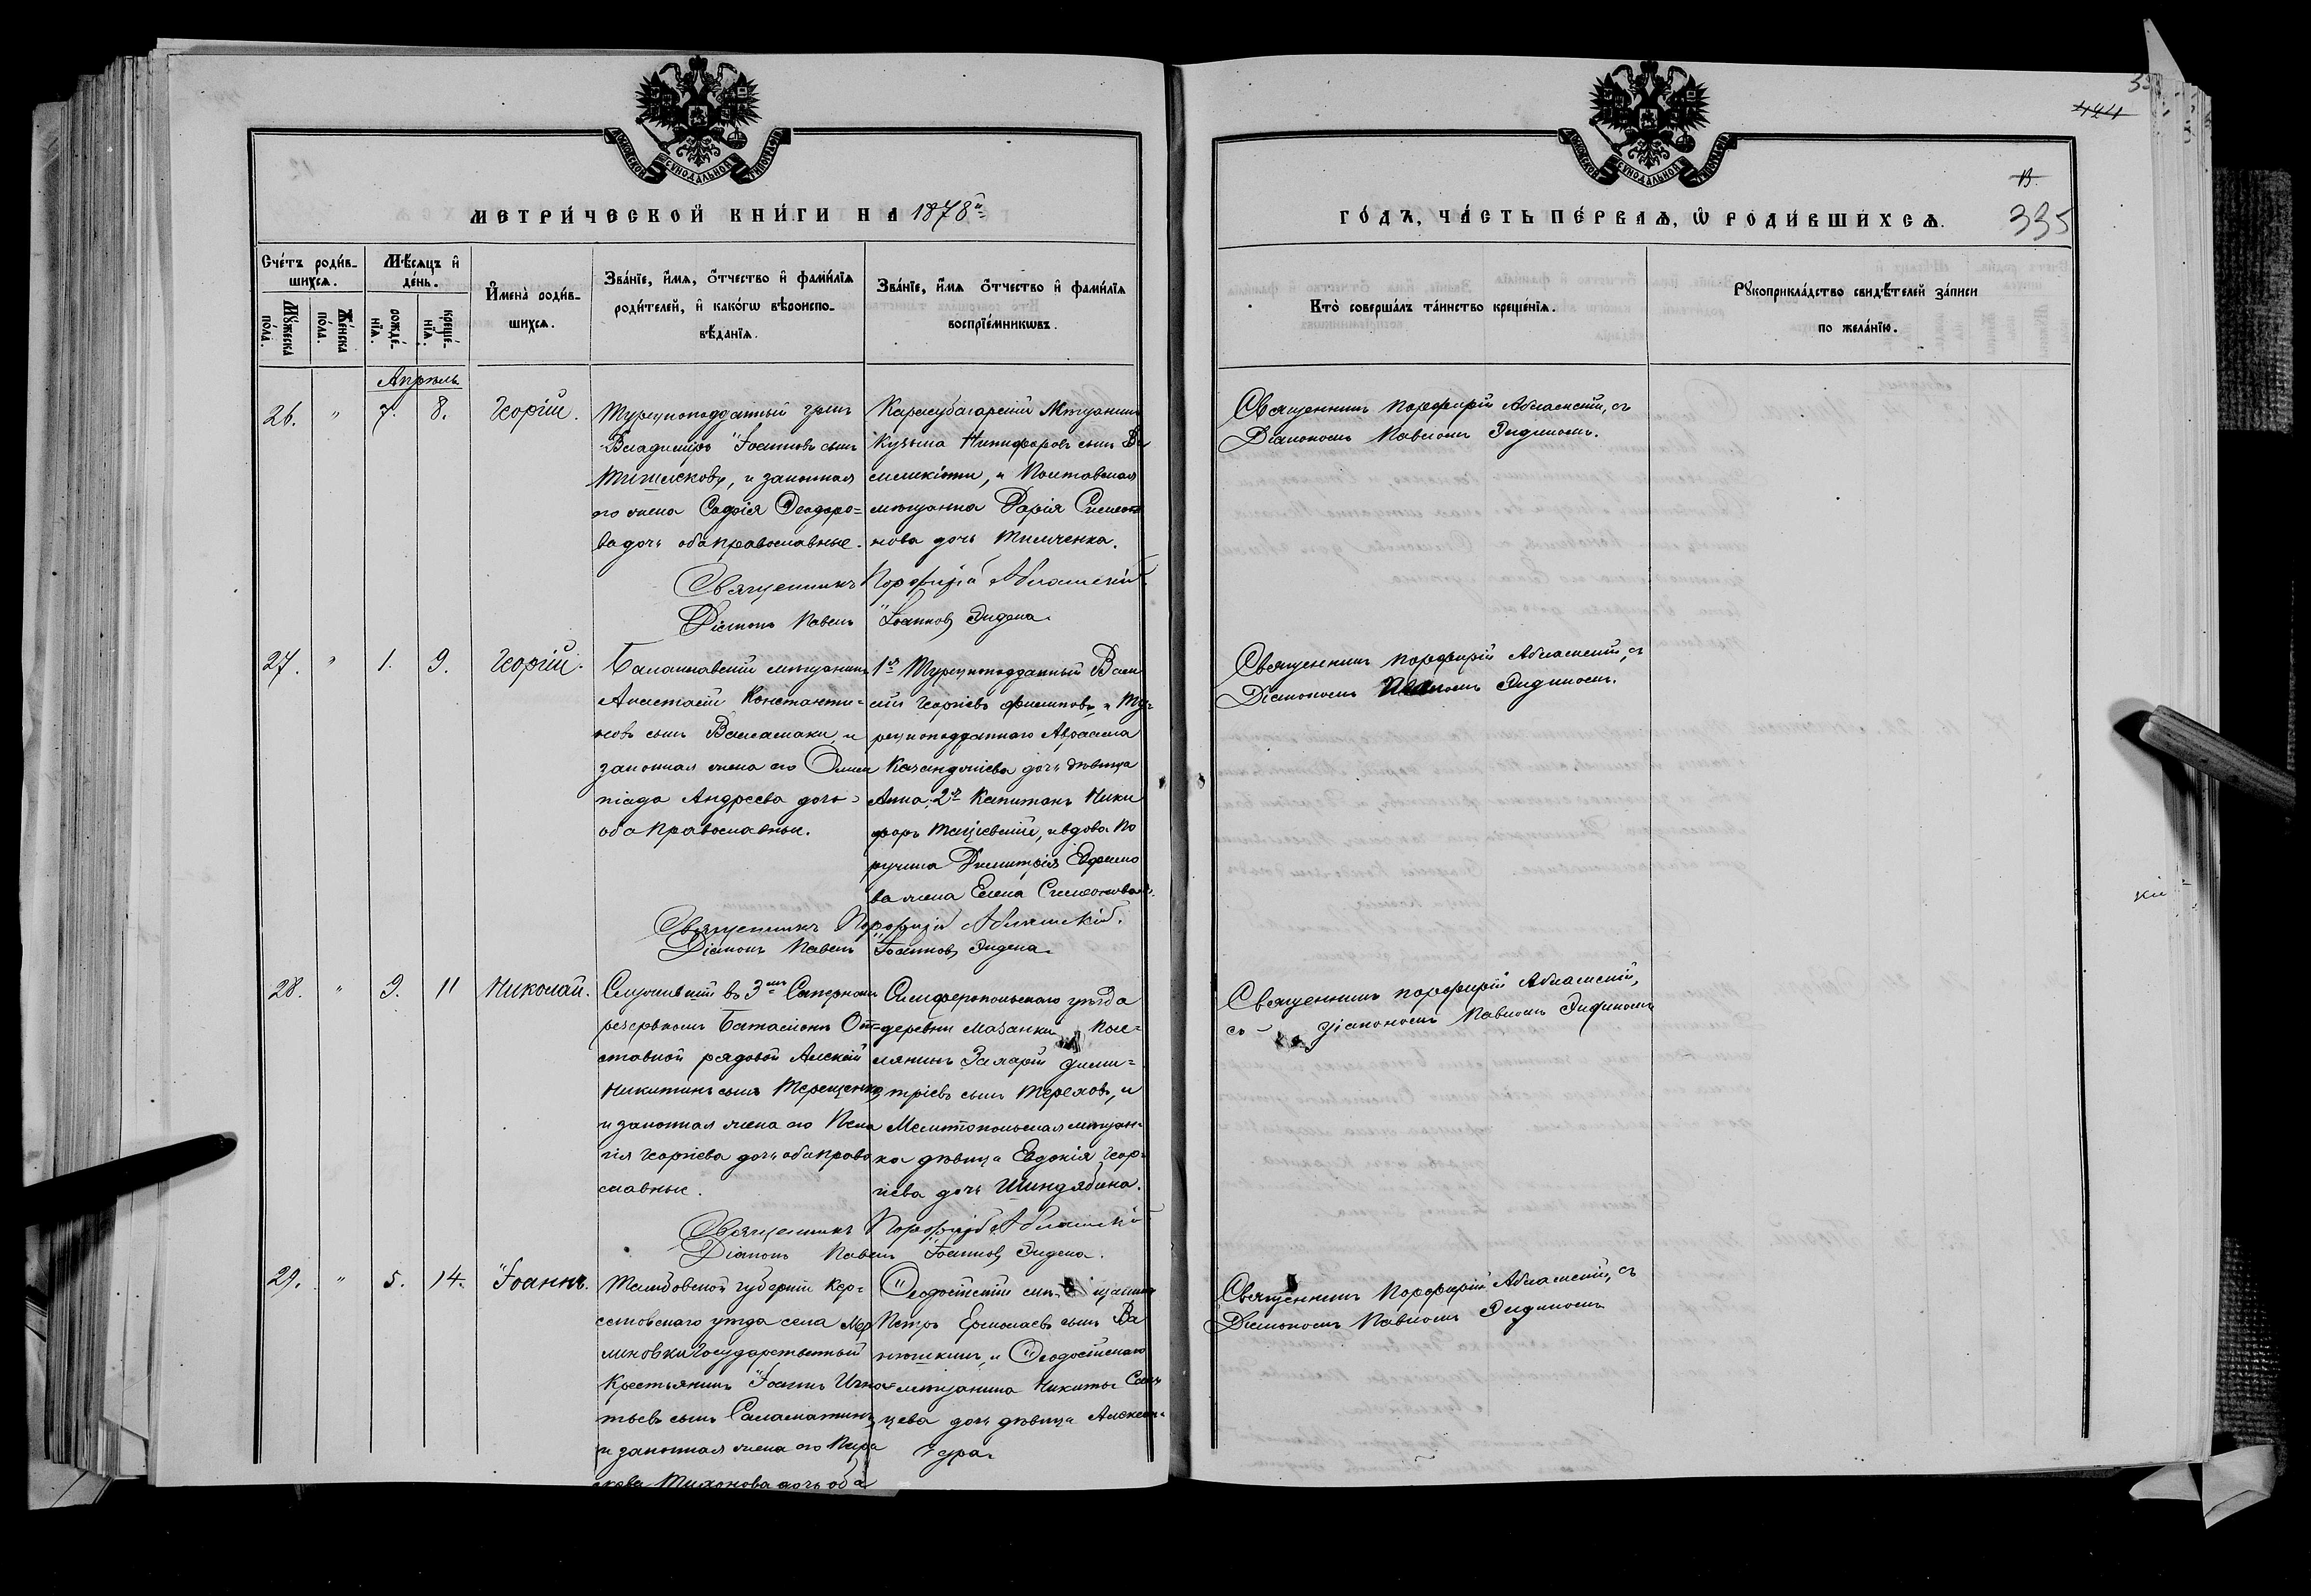 МЕТРИ́ЧЕСКОЙ КНИ́ГИ НА 1878й
Сче́тъ роди́вшихся.
Мѣ́сяцъ и҆ де́нь.
И҆мена̀ роди́вшихся.
Зва́нїе, и҆́мя, ѻ҆́тчество и҆ фами́лїя
роди́телей, и҆ како́гѡ вѣроиспо-
вѣ́данїя.
Зва́нїе, и҆́мя ѻ҆́тчество и҆ фами́лїя
воспрїе́мникѡвъ.
Мꙋ́жеска по́ла.
Же́нска по́ла.
рожде́нїя.
креще́нїя.
Апрѣль
26. " 7. 8. Георгій.
Турецкоподданный грекъ
Владиміръ Іоанновъ сынъ
и законная
его жена Софія Ѳеодоро=
ва дочь оба православные.
Карасубазарскій Мѣщанинъ
Кузьма Никифоровъ сынъ Ва
силикіоти, и Полтавская
мѣщанка Дарія Симео
нова дочь Тимченка.
Священникъ Порфирій Абламскій
Діаконъ Павелъ Іоанновъ Эндека.
27. " 1. 9. Георгій.
Балаклавскій мѣщанинъ
Анастасій Константи=
новъ сынъ и
законная жена его Олим
піада Андреева дочь
оба православные.
1й Турецкоподданный Васи
лій Георгіевъ Филиповъ и Ту=
рецкоподданнаго
дочь дѣвица
Анна; 2й Капитанъ Ники
форъ и вдова По
ручика Димитрія
ва жена Елена Симеонова.
Священникъ Порфирій Абламскій.
Діаконъ Павелъ Іоанновъ Эндека.
28. " 9. 11 Николай.
Служившій въ 3мъ Саперномъ
резервномъ Баталіонѣ От=
ставной рядовой Алексѣй
Никитинъ сынъ Терещенко
и законная жена его Пела
гія Георгіева дочь оба право
славные.
Симферопольскаго уѣзда
деревни Мазанки Посе=
лянинъ Захарій Дими=
тріевъ сынъ Тереховъ, и
Мелитопольская мѣщан=
ка дѣвица Евдокія Геор
гіева дочь Шиндябина.
Священникъ Порфирій Абламскій
Діаконъ Павелъ Іоанновъ Эндека.
29. " 5. 14. Іоаннъ.
Тамбовской губерніи Кер=
сановскаго уѣзда села
Государственный
Крестьянинъ Іоаннъ Игна=
тьевъ сынъ Саламатинъ
и законная жена его Пара
скева Тихонова дочь оба
Ѳеодосійскій мѣщанинъ
Петръ Ермолаевъ сынъ Ва
нюшкинъ, и Ѳеодосійскаго
мѣщанина Никиты
дочь дѣвица Алексан=
дра
ГО́ДЪ, ЧА́СТЬ ПЕ́РВАЯ, Ѡ҆ РОДИ́ВШИХСЯ.
335
Кто̀ соверша́лъ та́инство креще́нїя.
Рꙋкоприкла́дство свидѣ́телей за́писи
по жела́нїю.
Священникъ Порфирій Абламскій, съ
Діакономъ Павломъ Эндекою.
Священникъ Порфирій Абламскій, съ
Діакономъ Павломъ Эндекою.
Священникъ Порфирій Абламскій,
съ діакономъ Павломъ Эндекою
Священникъ Порфирій Абламскій, съ
Діакономъ Павломъ Эндекою